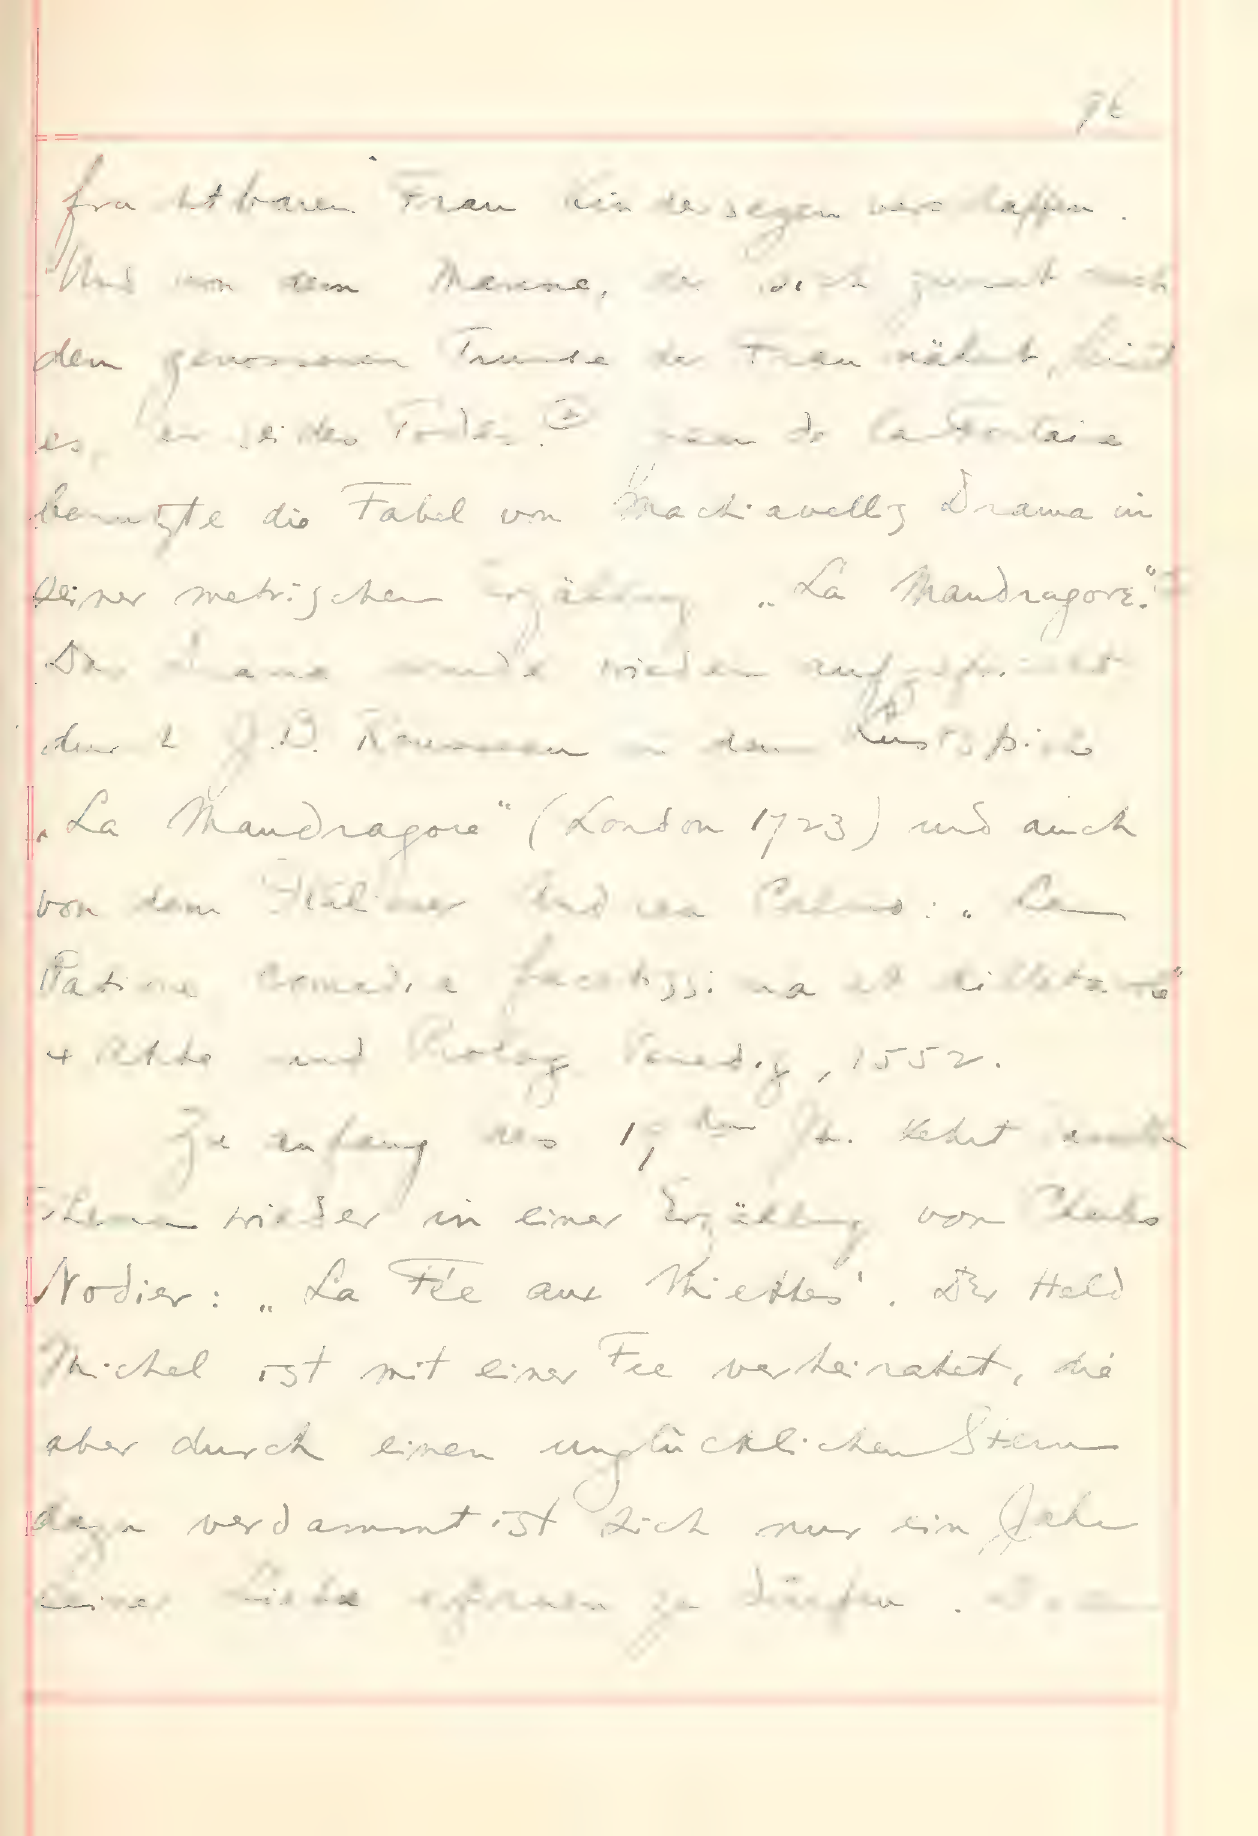 96
fruchtbaren Frau Kindersegen verschaffen.
Und von dem Manne, der sich zuerst nach
dem genossenen Trunke der Frau nähert, heisst
es, er sei des Todes. de La Fontaine
benutzte die Fabel von Machiavellis Drama in
seiner metrischen Erzählung „La Mandragore“.
Das Drama wurde wieder aufgefrischt
durch J. B. Rousseau in dem Lustspiele
„La Mandragore“ (London 1723) und auch
von dem Italiener Andrea Calmo: „La
Potione comedia facetissima et dilletevole“
4 Akte und Prolog Venedig, 1552.
Zu anfang des 19ten Jh. kehrt dasselbe
Thema wieder in einer Erzählung von Charles
Nodier: „La Fée aux Miettes“. Der Held
Michel ist mit einer Fee verheiratet, die
aber durch einen unglücklichen Stern
dazu verdammt ist sich nur ein Jahr
seiner Liebe erfreuen zu dürfen.